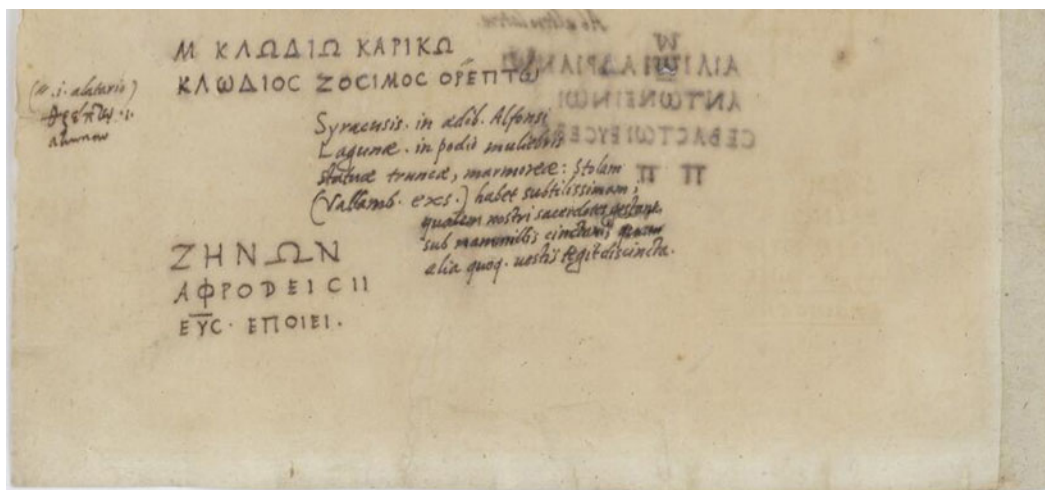 Μ ΚΛΩΔΙΩ ΚΑΡΙΚΩ
ΚΛΩΔΙΟC ΖΟCΙΜΟC ΘΡΕΠΤΩ
(... .i. alatario)
θρέπτῳ .i.
alumno
Syracusis. in ędib. Alfonsi
Lagunæ. in podio muliebris
statuæ truncæ, marmoreæ: Stolam
(Vallamb. exs.) habet subtilissimam;
qualem nostri sacerdotes gestant,
sub mammillis cinctam;
alia quoq. uestis tegit discincta.
ΖΗΝΩΝ
ΑΦΡΟΔΕΙCΙΙ
ΕΥC· ΕΠΟΙΕΙ.
ΑΙΛΙΤΩΙ ΑΔΡΙΑΝΩΙ
ΑΝΤΩΝΕΙΝΩΙ
CΕΒΑCΤΩΙ ΕΥCΕΒΕΙ
Π Π